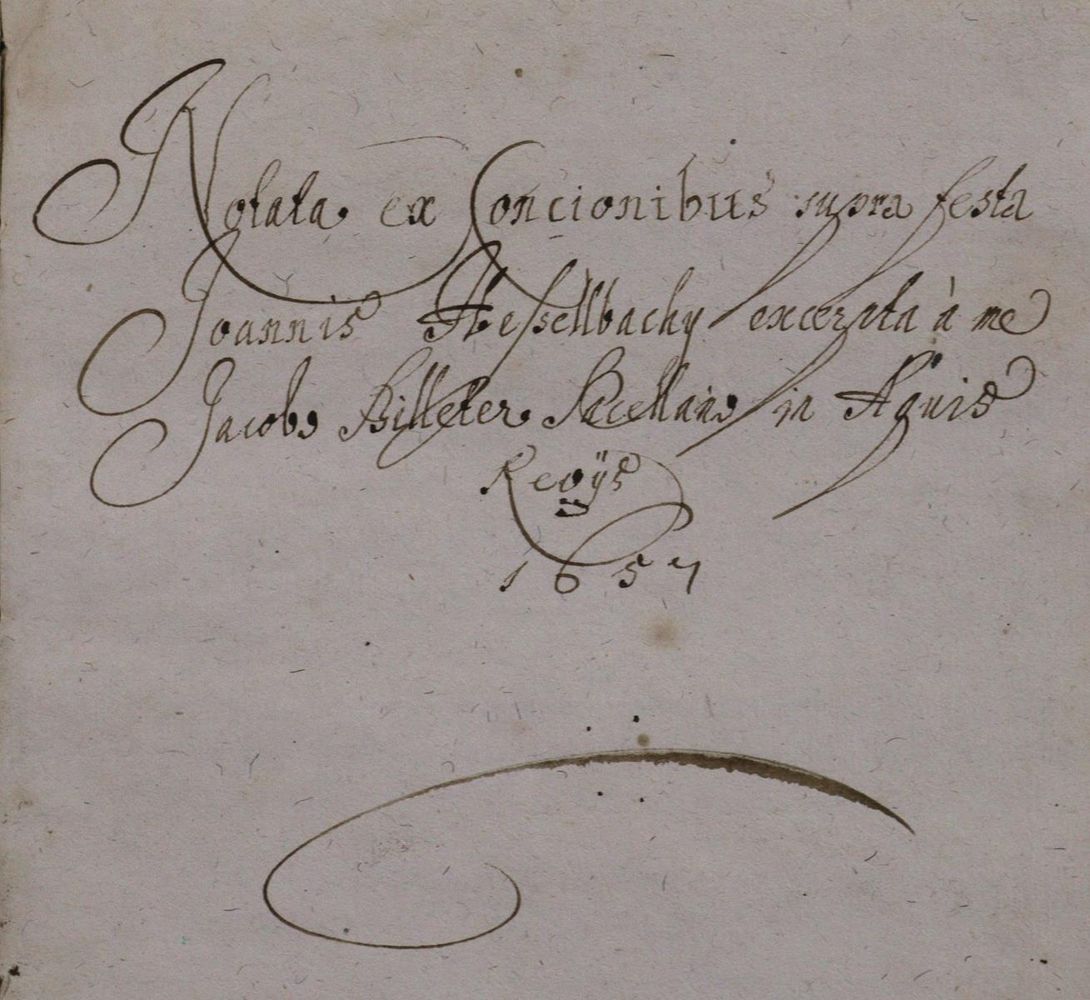 Notata ex Concionibus supra festa
Joannis Hesselbachy excerpta à me
Jacobo Billeter Sacellano in Aquis
Regÿs
1657